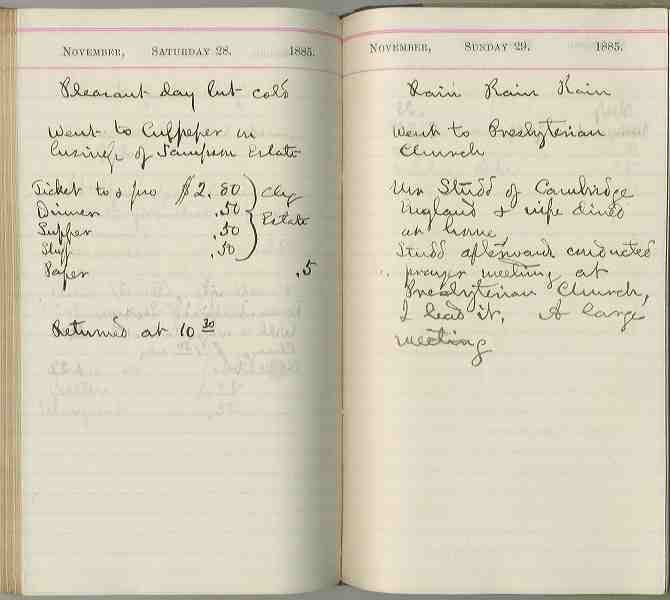 NOVEMBER, SATURDAY 28. 1885.
Pleasant day but cold
Went to Culpeper on
business of Sampson Estate
Ticket to & fro $2.80
Dinner .50
Supper .50
.50
Chg
Estate
Paper .5
Returned at 10 30
NOVEMBER, SUNDAY 29. 1885.
Rain Rain Rain
Went to Presbyterian
Church
Mr Studd of Cambridge
England & wife dined
at home
Studd afterward conducted
prayer meeting at
Presbyterian Church,
I lead it. A large
meeting